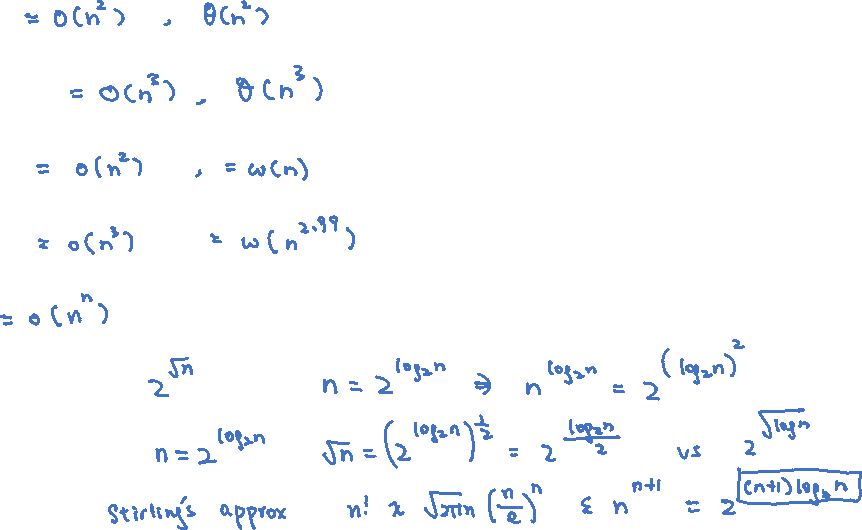 = O(n²) , θ(n²)
= O(n³) , θ(n³)
= o(n²) , = ω(n)
= o(n³) = ω(n^2.99)
= o(n^n)
2^√n n = 2^log₂n ⇒ n^log₂n = 2^(log₂n)²
n = 2^log₂n √n = (2^log₂n)^½ = 2^(log₂n/2) vs 2^√logn
Stirling's approx n! ≈ √2πn (n/e)^n & n^n+1 = 2^(n+1)log₂n